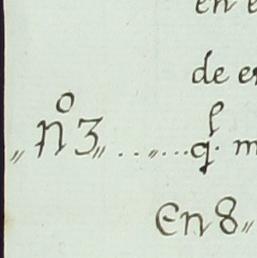 en e
de e
„nº 3„...„...q^l. m
En 8„